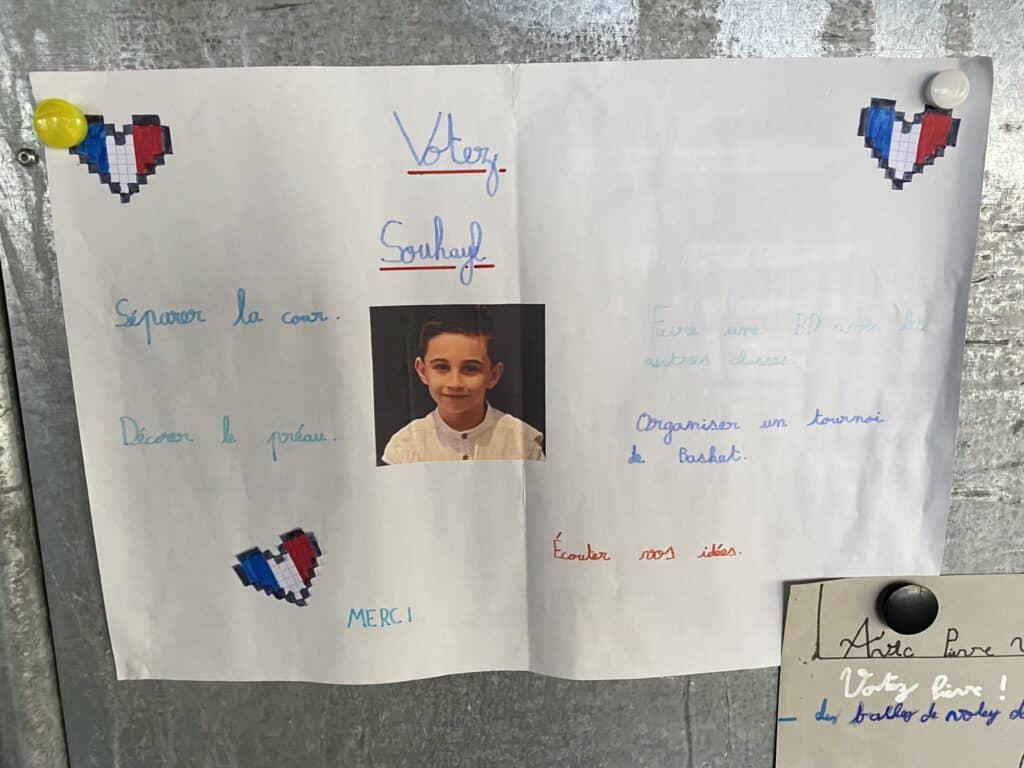 Votez
Souhayl
Séparer la cour.
Décorer le préau.
Faire une BD avec les
autres classes.
Organiser un tournoi
de Basket.
Écouter vos idées.
MERCI
Avec Pierre
Votez Pierre !
- des balles de voley d